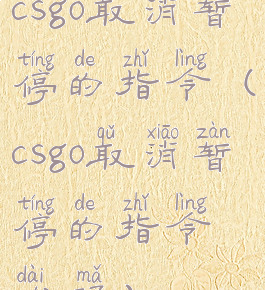 csgo取消暂
tíng de zhǐ lìng
停的指令(
qǔ xiāo zàn
csgo取消暂
tíng de zhǐ lìng
停的指令
dài mǎ